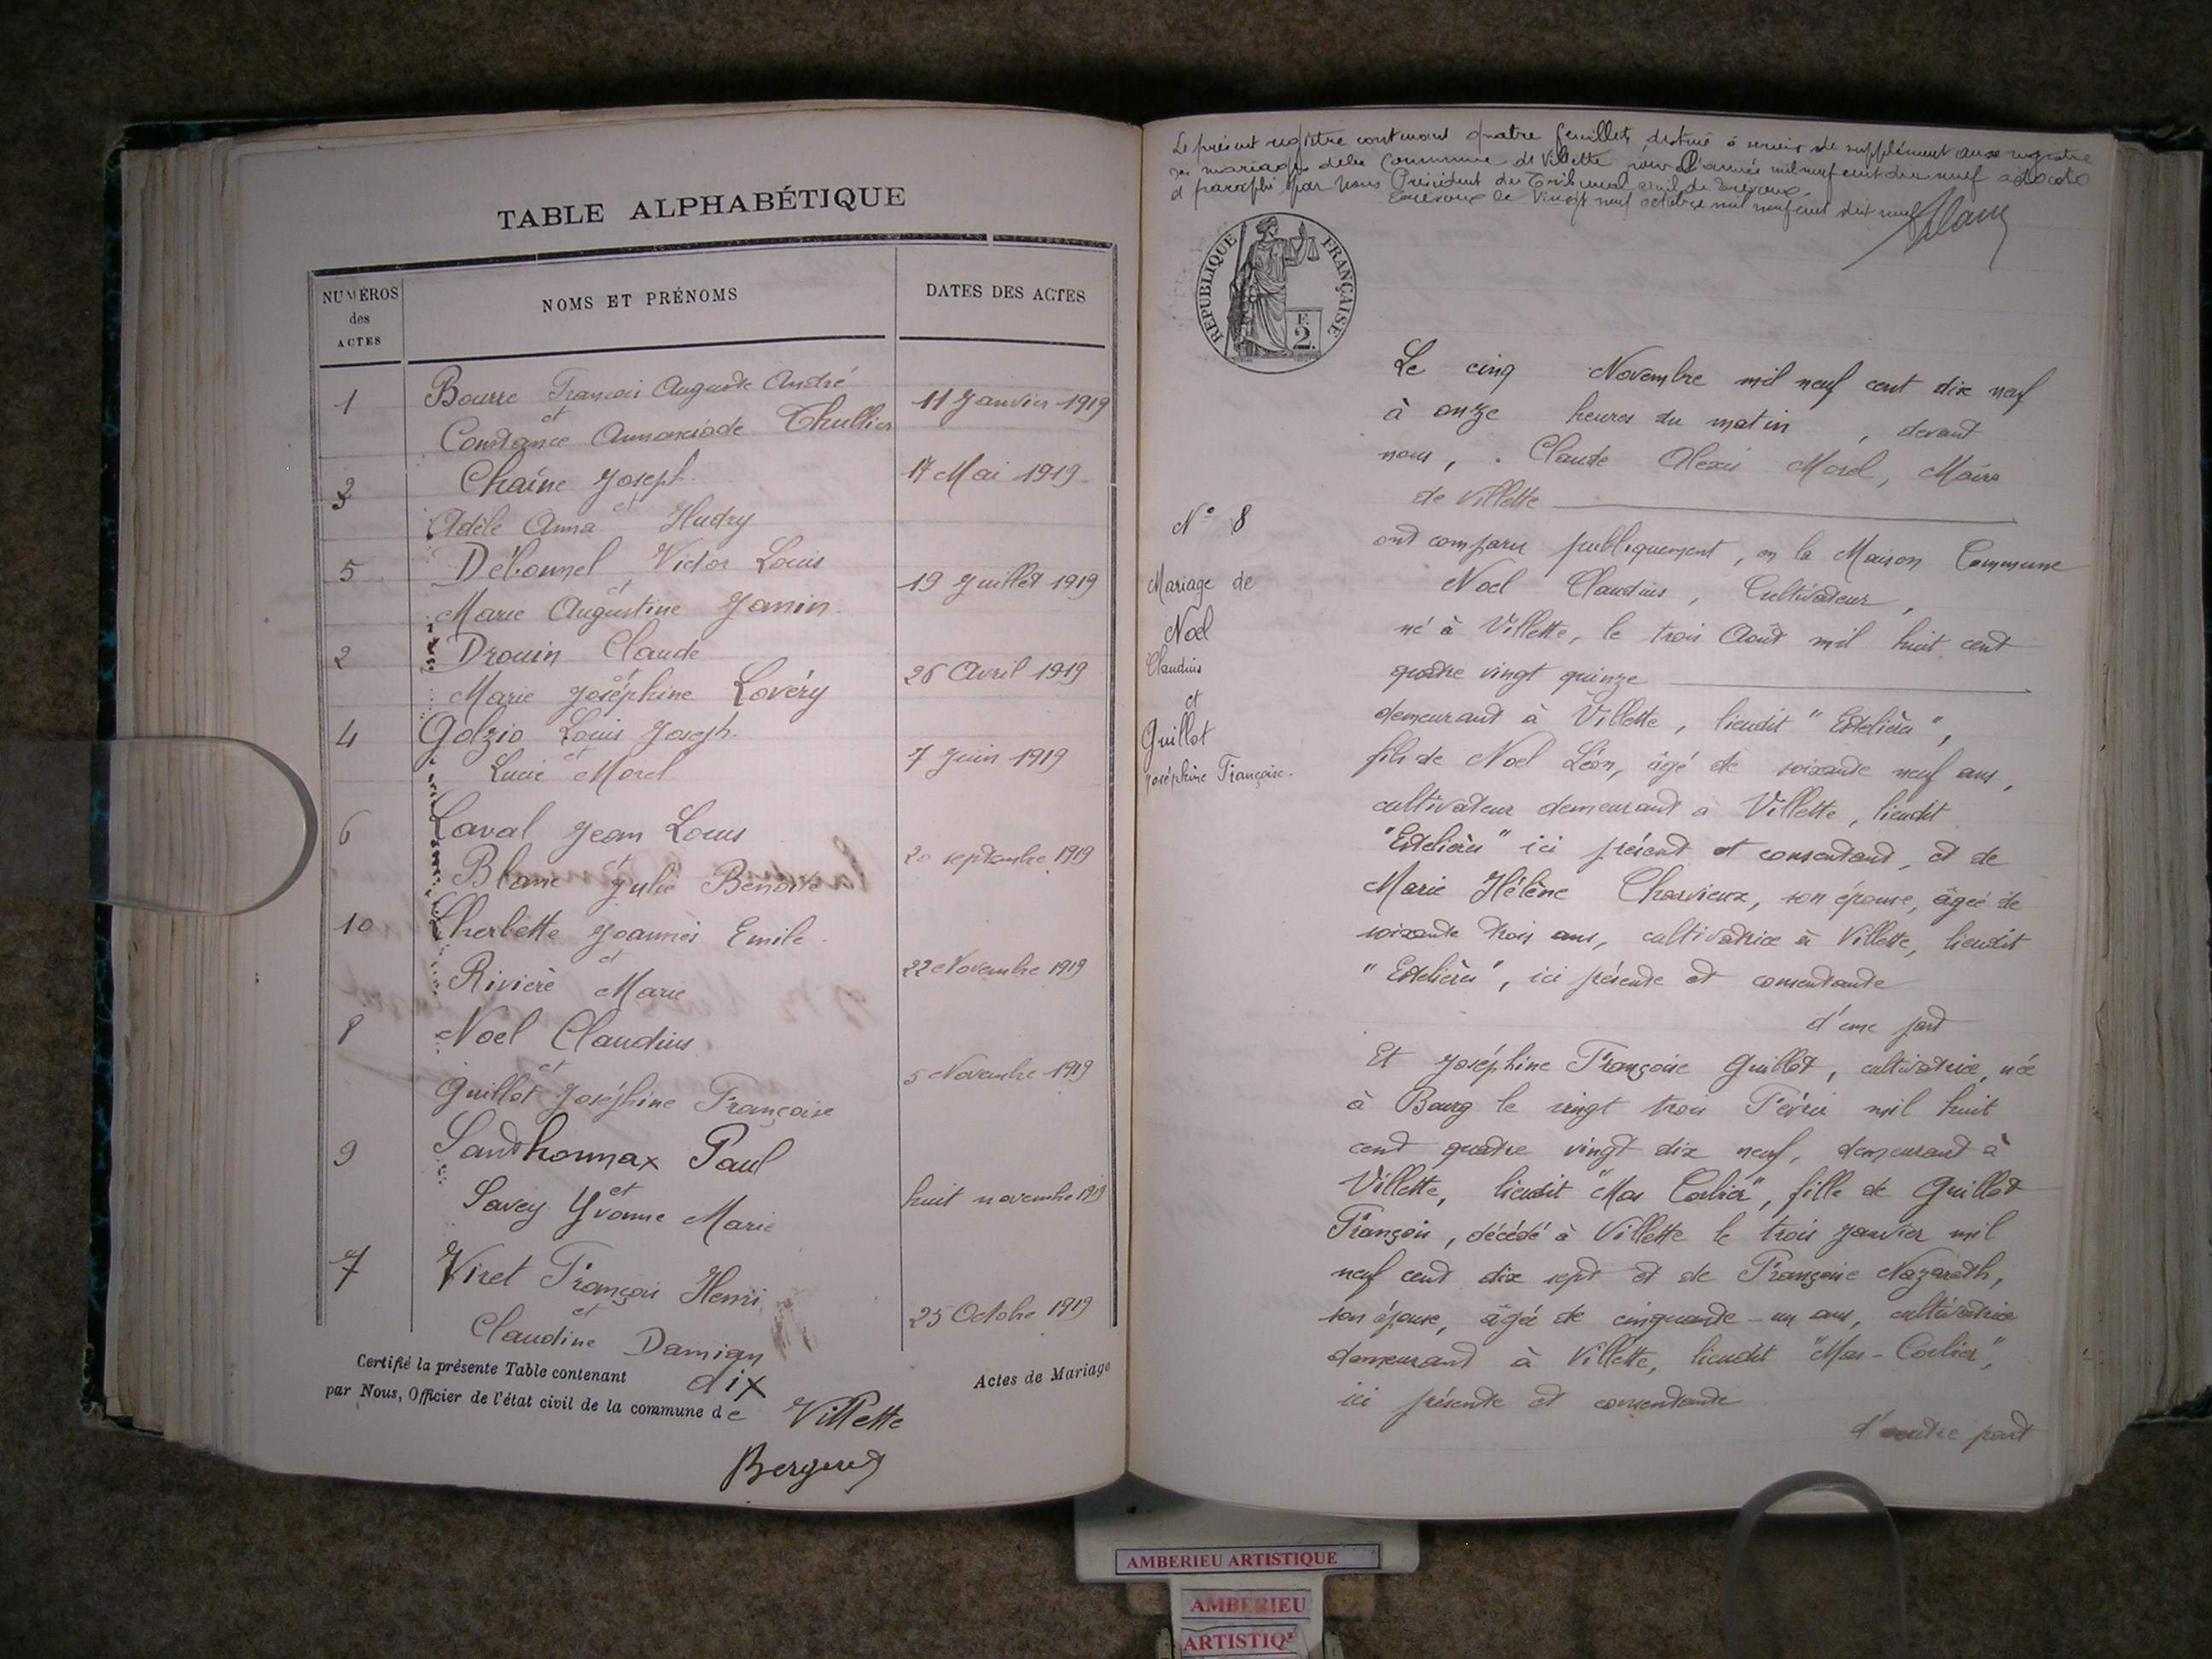 TABLE ALPHABÉTIQUE
NUMÉROS des ACTES
NOMS ET PRÉNOMS
DATES DES ACTES
1 Bourre François Auguste André 11 Janvier 1919
et
Constance Annonciade Thullier
3 Chaîne Joseph 17 Mai 1919
et
Adèle Anna Hudry
5 Débonnel Victor Louis 19 Juillet 1919
et
Marie Augustine Janin
2 Drouin Claude 26 Avril 1919
et
Marie Joséphine Lovéry
4 Golzio Louis Joseph 7 Juin 1919
et
Lucie Morel
6 Laval Jean Louis 20 septembre 1919
et
Blanc Julie Benoite
10 Lherbette Joannès Emile 22 Novembre 1919
et
Rivière Marie
8 Noel Claudius 5 Novembre 1919
et
Guillot Joséphine Françoise
9 Santhonnax Paul huit novembre 1919
et
Savey Yvonne Marie
7 Viret François Henri 25 Octobre 1919
et
Claudine Damian
Certifié la présente Table contenant dix Actes de Mariage
par Nous, Officier de l'état civil de la commune de Villette
Le présent registre contenant quatre feuillets, destiné à servir de supplément aux registre
de mariages de la Commune de Villette pour l'année mil neuf cent dix neuf a été coté
et paraphé par Nous Président du Tribunal civil de Trévoux.
Trévoux le vingt neuf octobre mil neuf cent dix neuf
RÉPUBLIQUE FRANÇAISE
F.
2.
N° 8
Mariage de
Noel
Claudius
et
Guillot
Joséphine Françoise.
Le cinq Novembre mil neuf cent dix neuf
à onze heures du matin, devant
nous, Claude Alexis Morel, Maire
de Villette
ont comparu publiquement, en la Maison Commune
Noel Claudius, Cultivateur,
né à Villette, le trois Août mil huit cent
quatre vingt quinze
demeurant à Villette, lieudit "Estelières",
fils de Noel Léon, âgé de soixante neuf ans,
cultivateur demeurant à Villette, lieudit
"Estelières" ici présent et consentant, et de
Marie Hélène Charvieux, son épouse, âgée de
soixante trois ans, cultivatrice à Villette, lieudit
"Estelières", ici présente et consentante
d'une part
Et Joséphine Françoise Guillot, cultivatrice, née
à Bourg le vingt trois Févrie mil huit
cent quatre vingt dix neuf, demeurant à
Villette, lieudit "Mas Corlier", fille de Guillot
François, décédé à Villette le trois Janvier mil
neuf cent dix sept et de Françoise Nazareth,
son épouse, âgée de cinquante-un ans, cultivatrice
demeurant à Villette, lieudit "Mas-Corlier",
ici présente et consentante
d'autre part
AMBERIEU ARTISTIQUE
AMBERIEU
ARTISTIQ